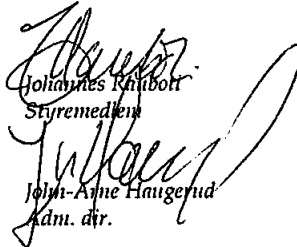 Johannes
Styremedlem
John-Arne Haugerud
Adm. dir.